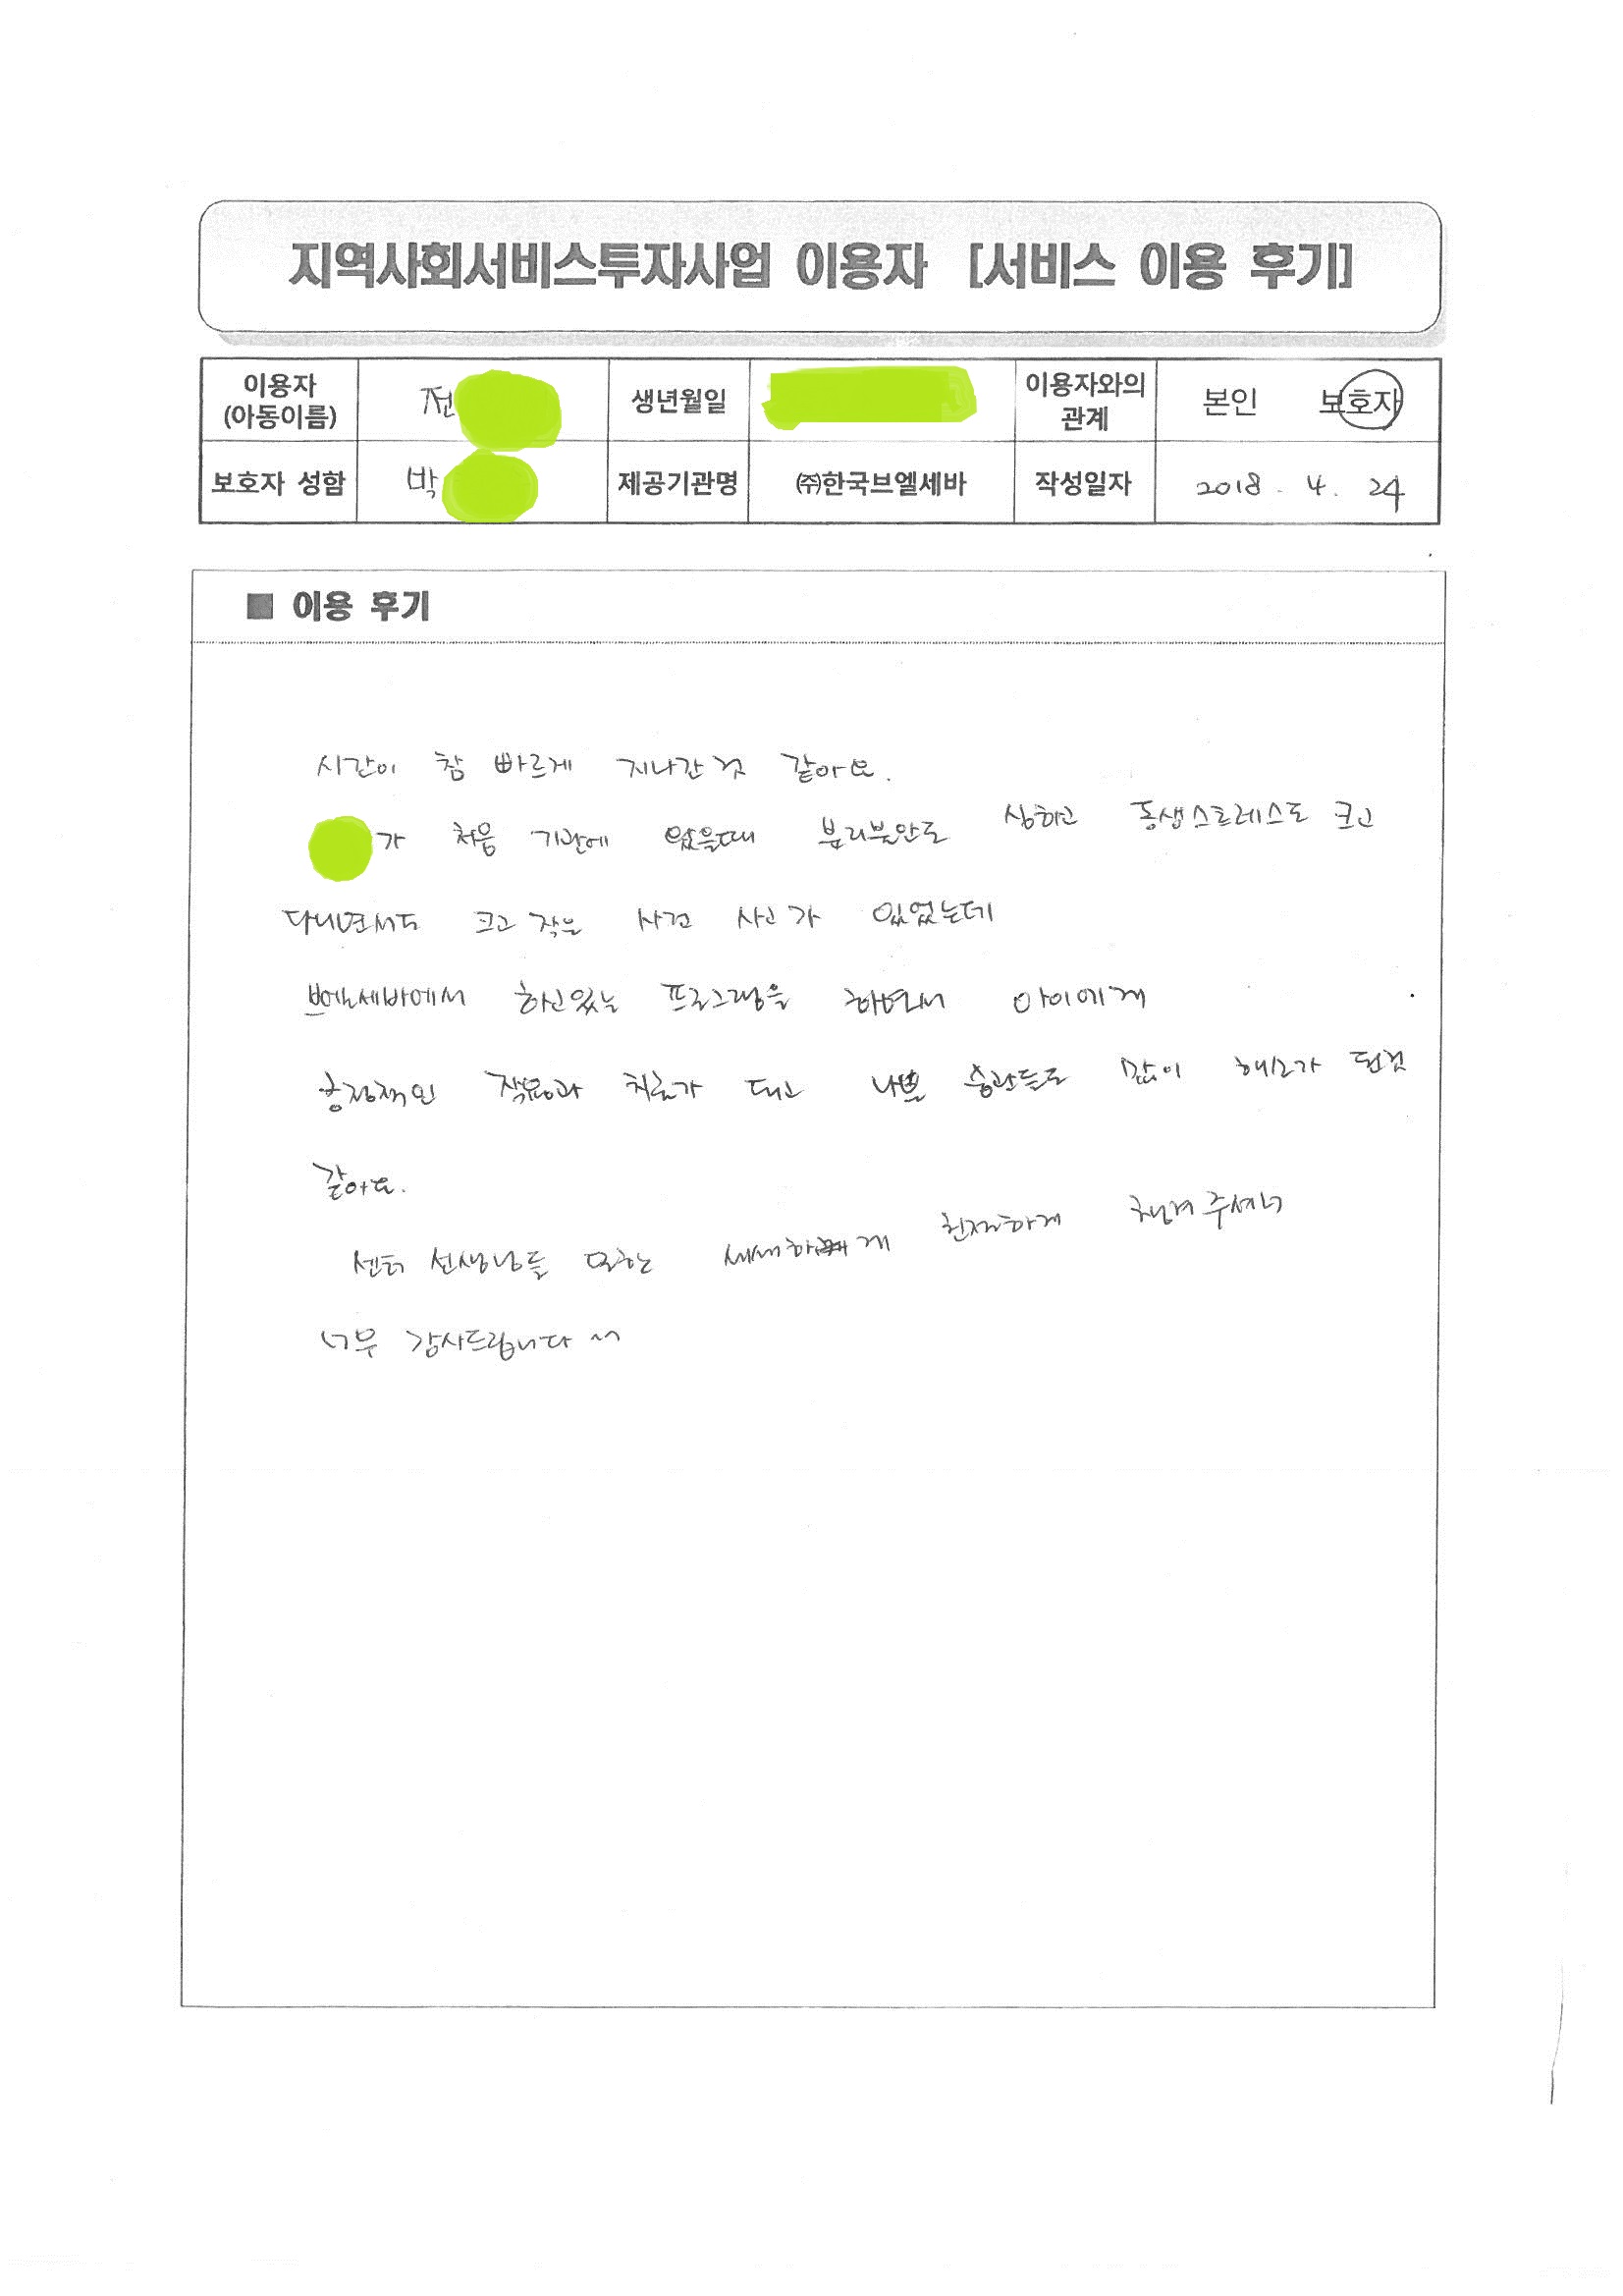 지역사회서비스투자사업 이용자 [서비스 이용 후기]
이용자 (아동이름) 전 생년월일 이용자와의 관계 본인 보호자
보호자 성함 박 제공기관명 ㈜한국브엘세바 작성일자 2018. 4. 24
■ 이용 후기
시간이 참 빠르게 지나간것 같아요.
가 처음 기관에 왔을때 분리불안도 심하고 동생스트레스도 크고
다니면서도 크고 작은 사건 사고가 있었는데
브엘세바에서 하고있는 프로그램을 하면서 아이에게
긍정적인 작용과 치료가 되고 나쁜 습관들도 많이 해소가 된것
같아요.
센터 선생님들 또한 세세하게 친절하게 챙겨주셔서
너무 감사드립니다 ~